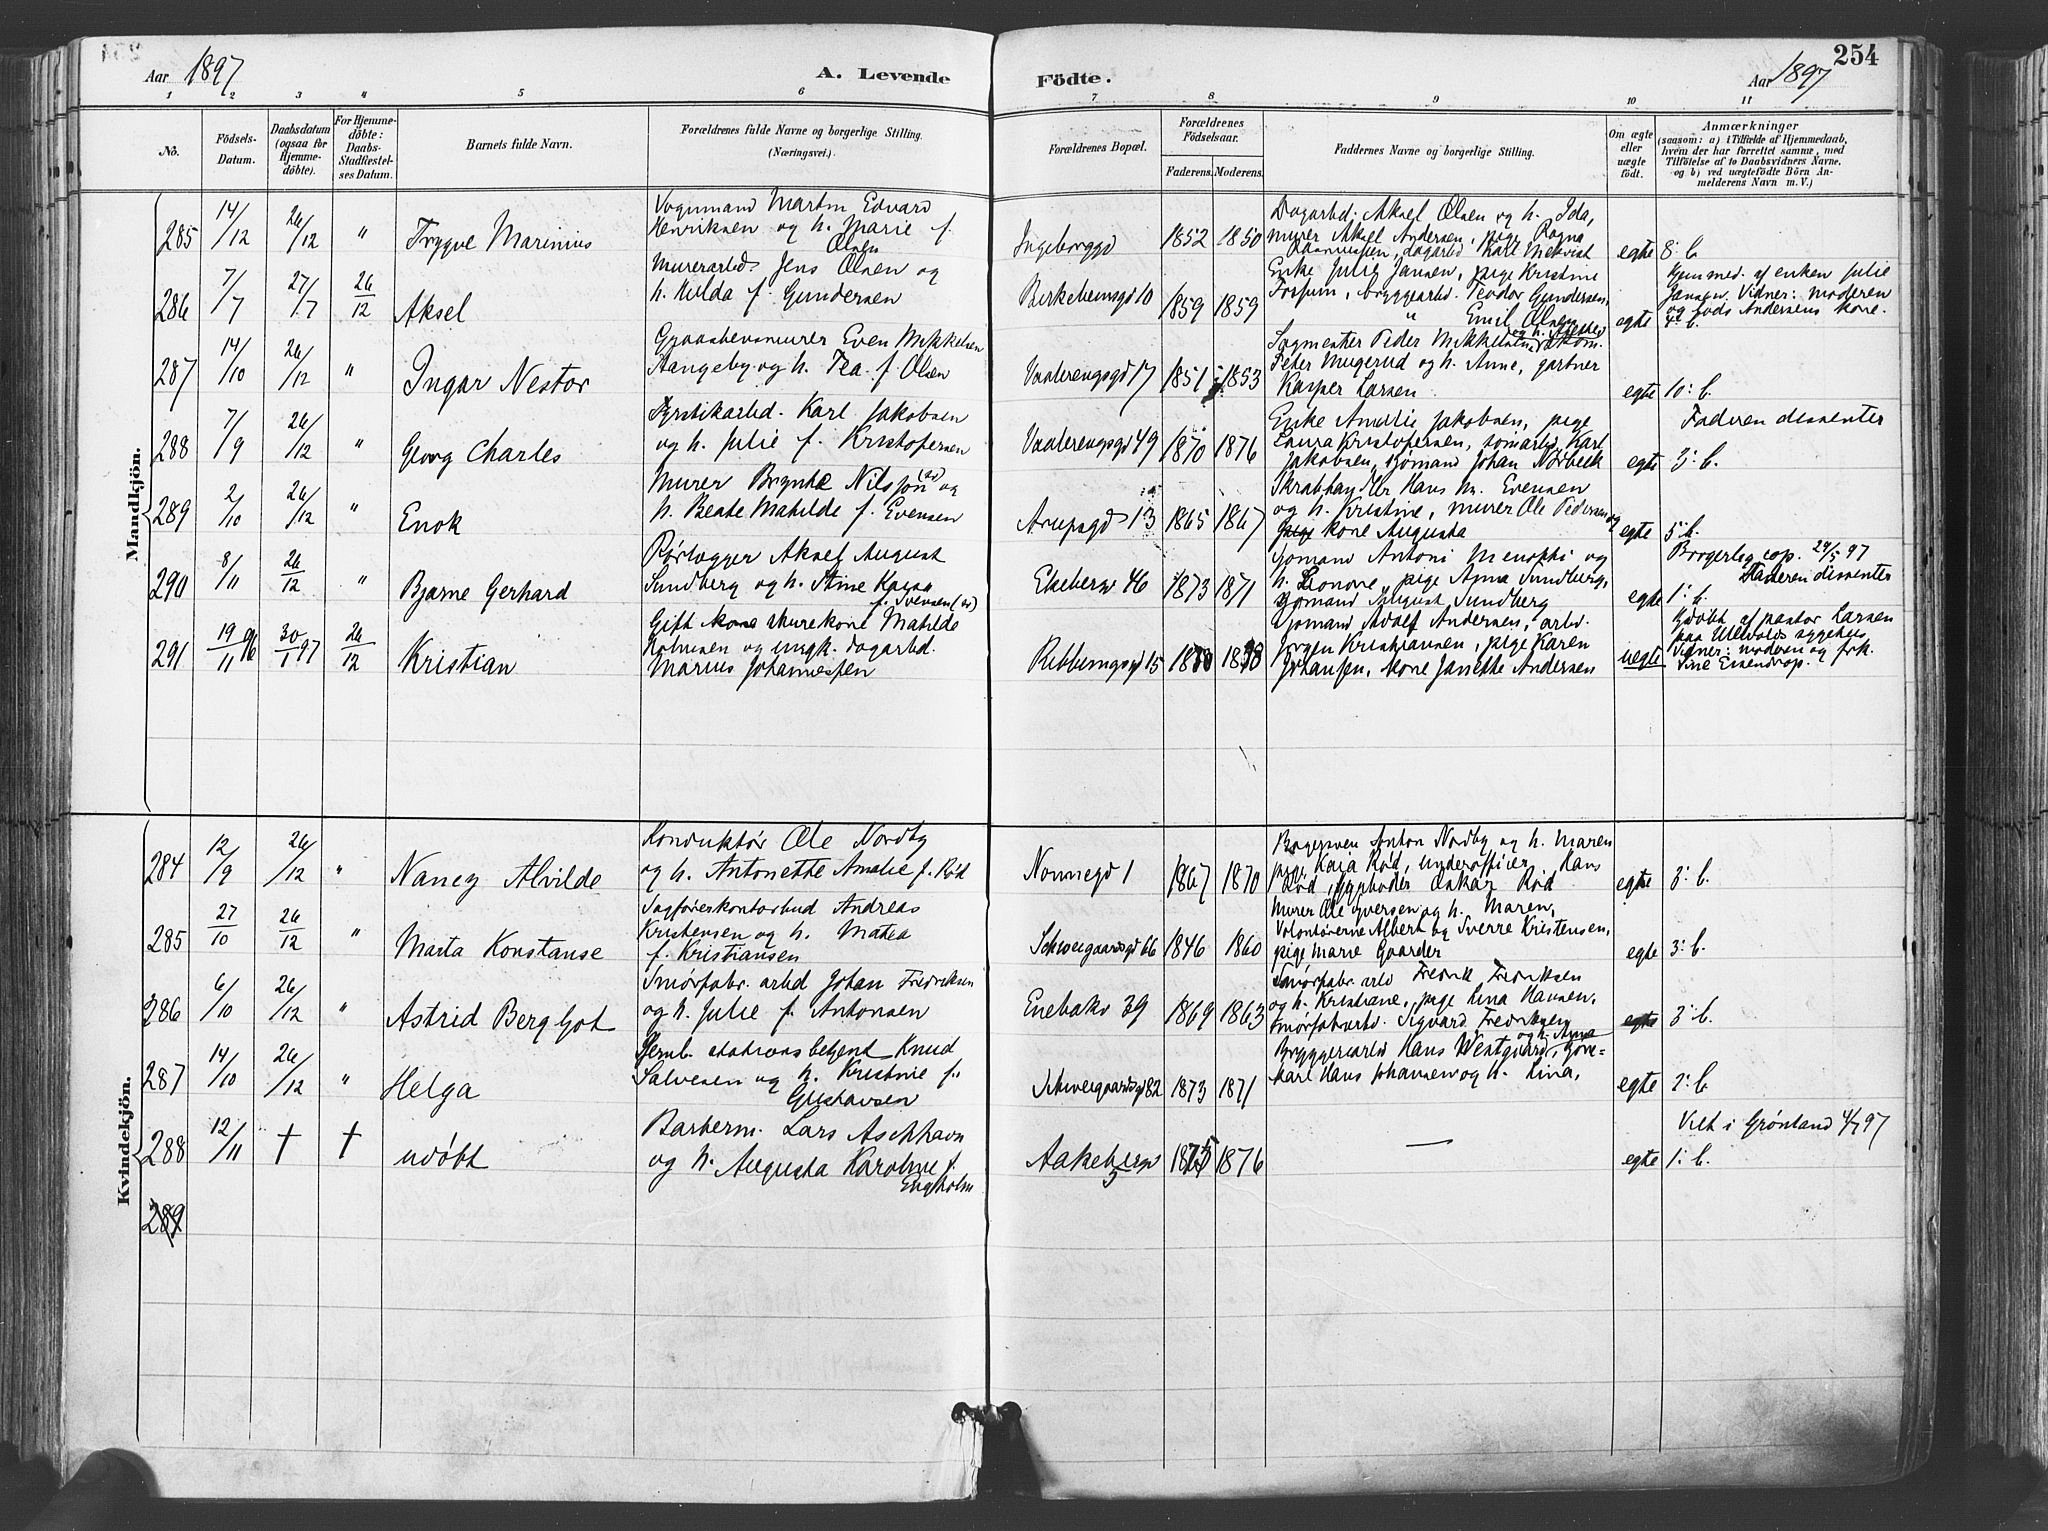 254
Aar 1897
A. Levende
Födte.
Aar 1897
1 2 3 " 5 6 7 8 9 10 11
No.
Födsels-
Datum.
Daabsdatum
(ogsaa for
Hjemme-
döbte).
For Hjemme-
döbte:
Daabs-
Stadfæstel-
ses Datum.
Barnets fulde Navn.
Forældrenes fulde Navne og borgerlige Stilling.
(Næringsvei.)
Forældrenes Bopæl.
Forældrenes
Födselsaar.
Faderens. Moderens.
Faddernes Navne og borgerlige Stilling.
Om ægte
eller
uægte
født.
Anmærkninger
(saasom: a) i Tilfælde af Hjemmedaab,
hvem der har forrettet samme, med
Tilföielse af to Daabsvidners Navne,
og b) ved uægtefödte Börn An-
melderens Navn m. V.)
Mandkjön.
285 14/12 26/12 " Trygve Marinius
Vognmand Martin Edvard
Henriksen og h. Marie f.
Olsen
Ingeborggd 1852 1850
Dagarbd. Aksel Olsen og h. Ida,
murer Aksel Andersen, pige Ragna
Rasmussen, dagarbd Karl
egte 8. b.
286 7/7 27/7 26/12 Aksel
Murerarbd. Jens Olsen og
h. Hilda f. Gundersen
Birkebeinsgd 10 1859 1859
Enke Julie Jansen, pige Kristine
Forsum, bryggearbd. Teodor Gundersen,
" Emil Olsen
egte 4. b.
Hjemmed. af enken Julie
Jansen. Vidner: moderen
og Andersens kone.
287 14/10 26/12 " Ingar Nestor
Even Mikkelsen
Hangeby og h. Tea f. Olsen
Vaalerengsgd 17 1851 1853
Sagmester Peder Mikkelsen
Peter Mugerud og h. Anne, gartner
Kasper Larsen
egte 10. b.
288 7/9 26/12 " Georg Charles
Fyrstikarbd. Karl Jakobsen
og h. Julie f. Kristofersen
Vaalerengsgd 49 1870 1876
Enke Amalie Jakobsen, pige
Laura Kristofersen, Karl
Jakobsen, sjømand Johan Nørbeck
egte 3. b.
Faderen dissenter
289 2/10 26/12 " Enok
Murer Bryntle Nilsson og
h. Beate Matilde f. Evensen
Arupsgd 13 1865 1867
Skraphandler Hans M. Evensen
og h. Kristine, murer Ole Pedersen og
kone Augusta
egte 5. b.
290 8/11 26/12 " Bjarne Gerhard
Rørlægger Aksel August
Sundberg og h. Stine Kaisa
f. Svensen
Ekebergv 46 1873 1871
Sjømand Antoni Menotti og
h. Leonore, pige Anna Sundberg,
sjømand August Sundberg
egte 1. b.
Borgerlig cop. 24/5 97
Faderen dissenter
291 19/11 96 30/1 97 26/12 Kristian
Gift skurekone Matilde
Holmsen og ungk. dagarbd.
Marius Johannessen
Ribbungsgd 15
Sjømand Adolf Andersen, arbd.
Jørgen Kristiansen, pige Karen
Johansen, kone Janette Andersen
uegte
Hjdøbt af pastor Larsen
paa Ullevolds sygehus
Vidner: moderen og frk.
Sine Eisendrop.
Kvindekjön.
284 12/9 26/12 " Nancy Alvilde
Konduktør Ole Nordby
og h. Antonette Amalie f. Rød
Nonnegd 1 1867 1870
Bagersven Anton Nordby og h. Maren
pige Kaja Rød, underofficer Hans
Rød, Oskar Rød
egte 3. b.
285 27/10 26/12 " Marta Konstanse
Sagførerkontorbud Andreas
Kristensen og h. Matea
f. Kristiansen
Schweigaardsgd 66 1846 1860
Murer Ole Iversen og h. Maren,
Volontørerne Albert og Sverre Kristensen,
pige Marie Gaarder
egte 3. b.
286 6/10 26/12 " Astrid Bergljot
Smørfabr. arbd Johan Fredriksen
og h. Julie f. Antonsen
Enebakv 39 1869 1863
Smørfabr. arbd Fredrik Fredriksen
og h. Kristiane, pige Lina Hansen,
Smørfabrarbd. Sigvard Fredriksen
egte 3. b.
287 14/10 26/12 " Helga
Jernb. stationsbetjent Knud
Salvesen og h. Kristine f.
Gustavsen
Schweigaardsgd 82 1873 1871
Bryggeriarbd Hans Westgaard og h. Anna,
karl Hans Johansen og h. Lina,
egte 2. b.
288 12/11 † † udøbt
Barberm. Lars Aschhavn
og h. Augusta Karoline f.
Engholm
Aakebergv 5 1875 1876
—
egte 1. b.
Viet i Grønland 4/7 97
289